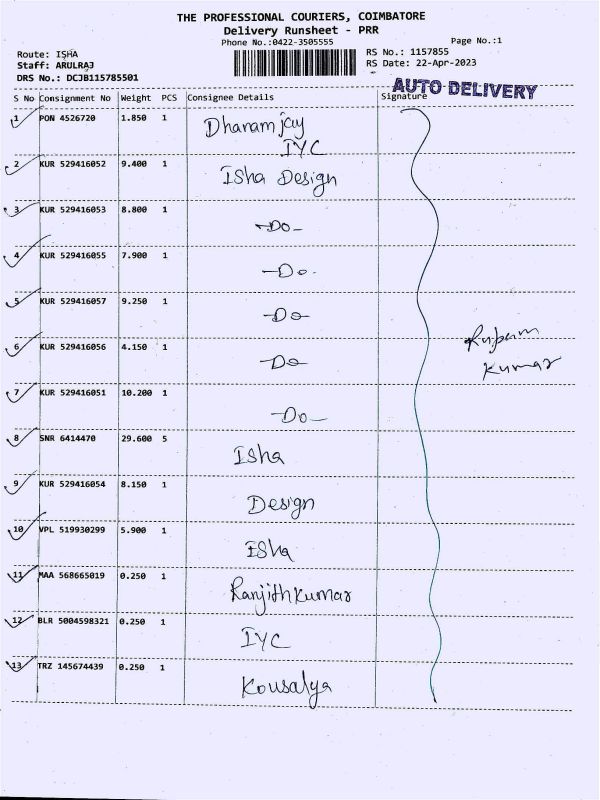 THE PROFESSIONAL COURIERS, COIMBATORE
Delivery Runsheet - PRR
Phone No.:0422-3505555
Page No.:1
Route: ISHA
Staff: ARULRAJ
DRS No.: DCJB115785501
RS No.: 1157855
RS Date: 22-Apr-2023
AUTO DELIVERY
S No Consignment No Weight PCS Consignee Details Signature
1 PON 4526720 1.850 1 Dhanamjay
IYC
2 KUR 529416052 9.400 1 Isha Design
3 KUR 529416053 8.800 1 -Do-
4 KUR 529416055 7.900 1 -Do-
5 KUR 529416057 9.250 1 -Do-
6 KUR 529416056 4.150 1 -Do-
7 KUR 529416051 10.200 1 -Do-
8 SNR 6414470 29.600 5 Isha
9 KUR 529416054 8.150 1 Design
10 VPL 519930299 5.900 1 Isha
11 MAA 568665019 0.250 1 Ranjithkumar
12 BLR 5004598321 0.250 1 IYC
13 TRZ 145674439 0.250 1 Kousalya
Rupam
Kumar